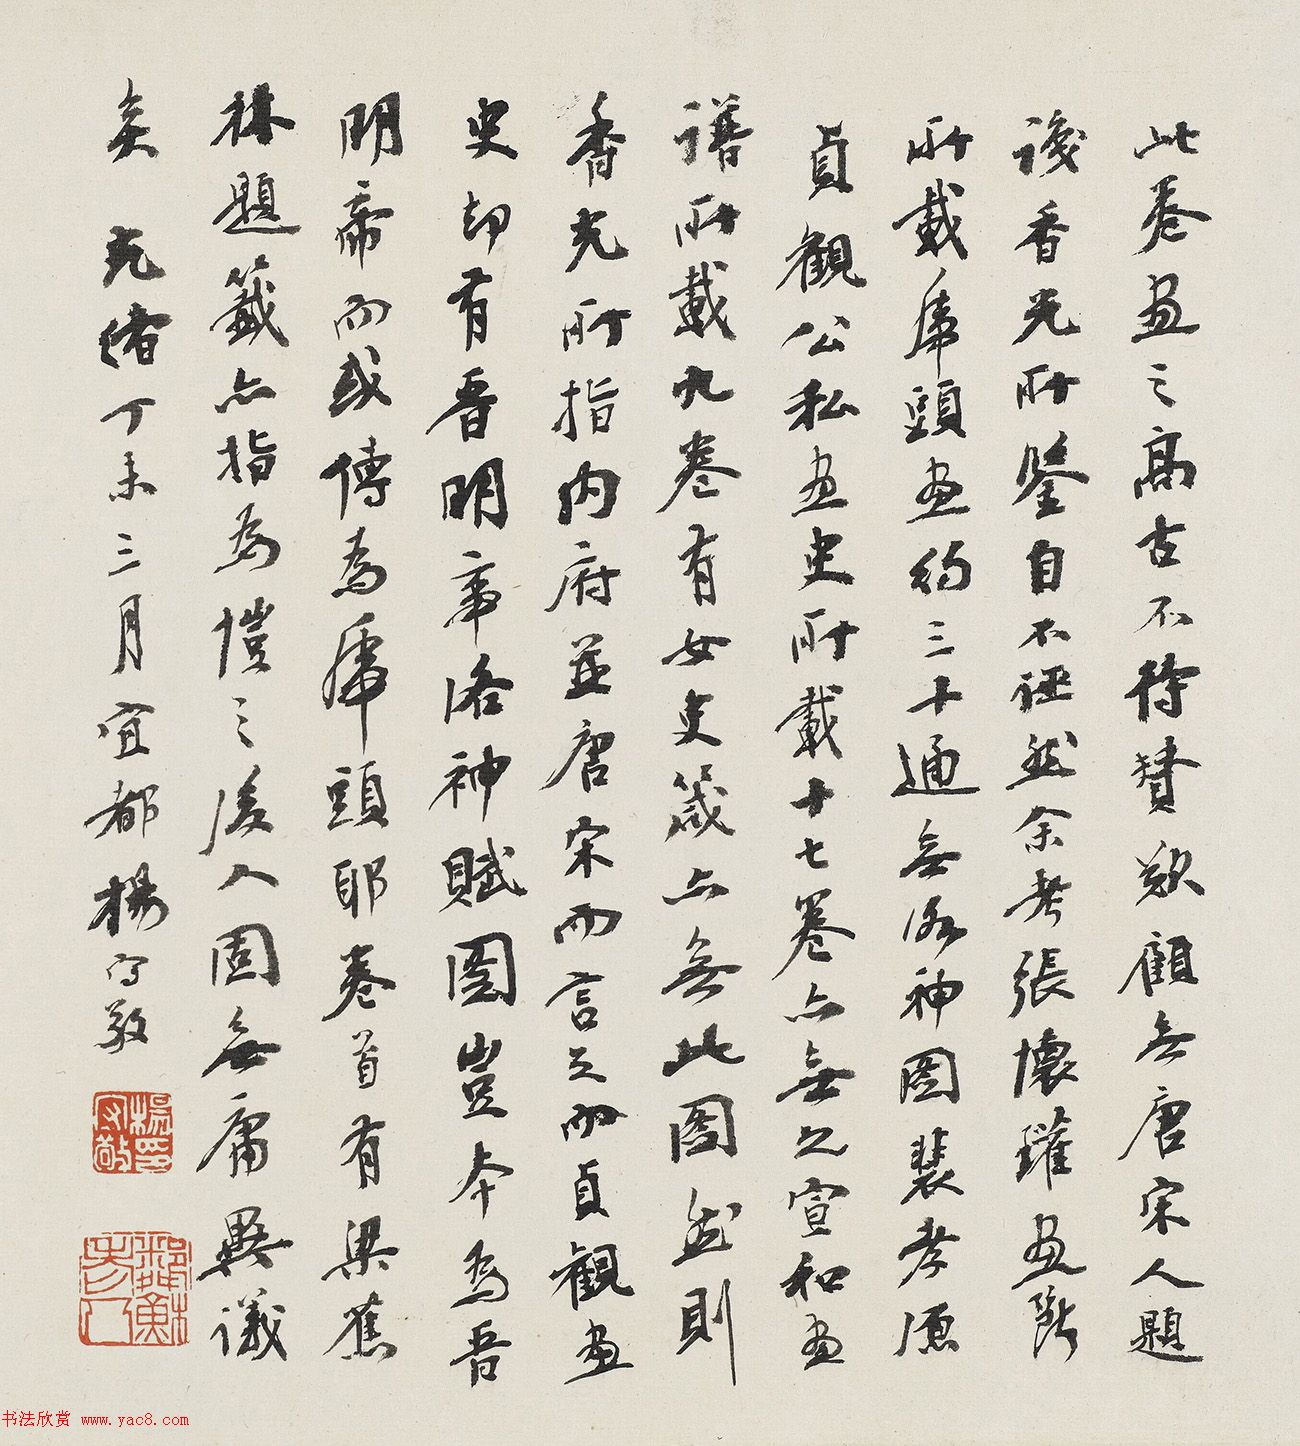 此卷画之高古不待贊歎顧無唐宋人題
識香光所鑒自不誣然余考張懷瓘画斷
所載虎頭画約三十通無洛神圖裴孝源
貞觀公私画史所載十七卷亦無之宣和画
譜所載九卷有女史箴亦無此圖然則
香光所指内府並唐宋而言之耶貞觀画
史却有晋明帝洛神賦圖豈本為晋
明帝而或傳為虎頭耶卷首有梁蕉
林題籤亦指為愷之後人固無庸異議
矣 光緒丁未三月宜都楊守敬
楊守敬印
鄰蘇老人
书法欣赏 www.yac8.com